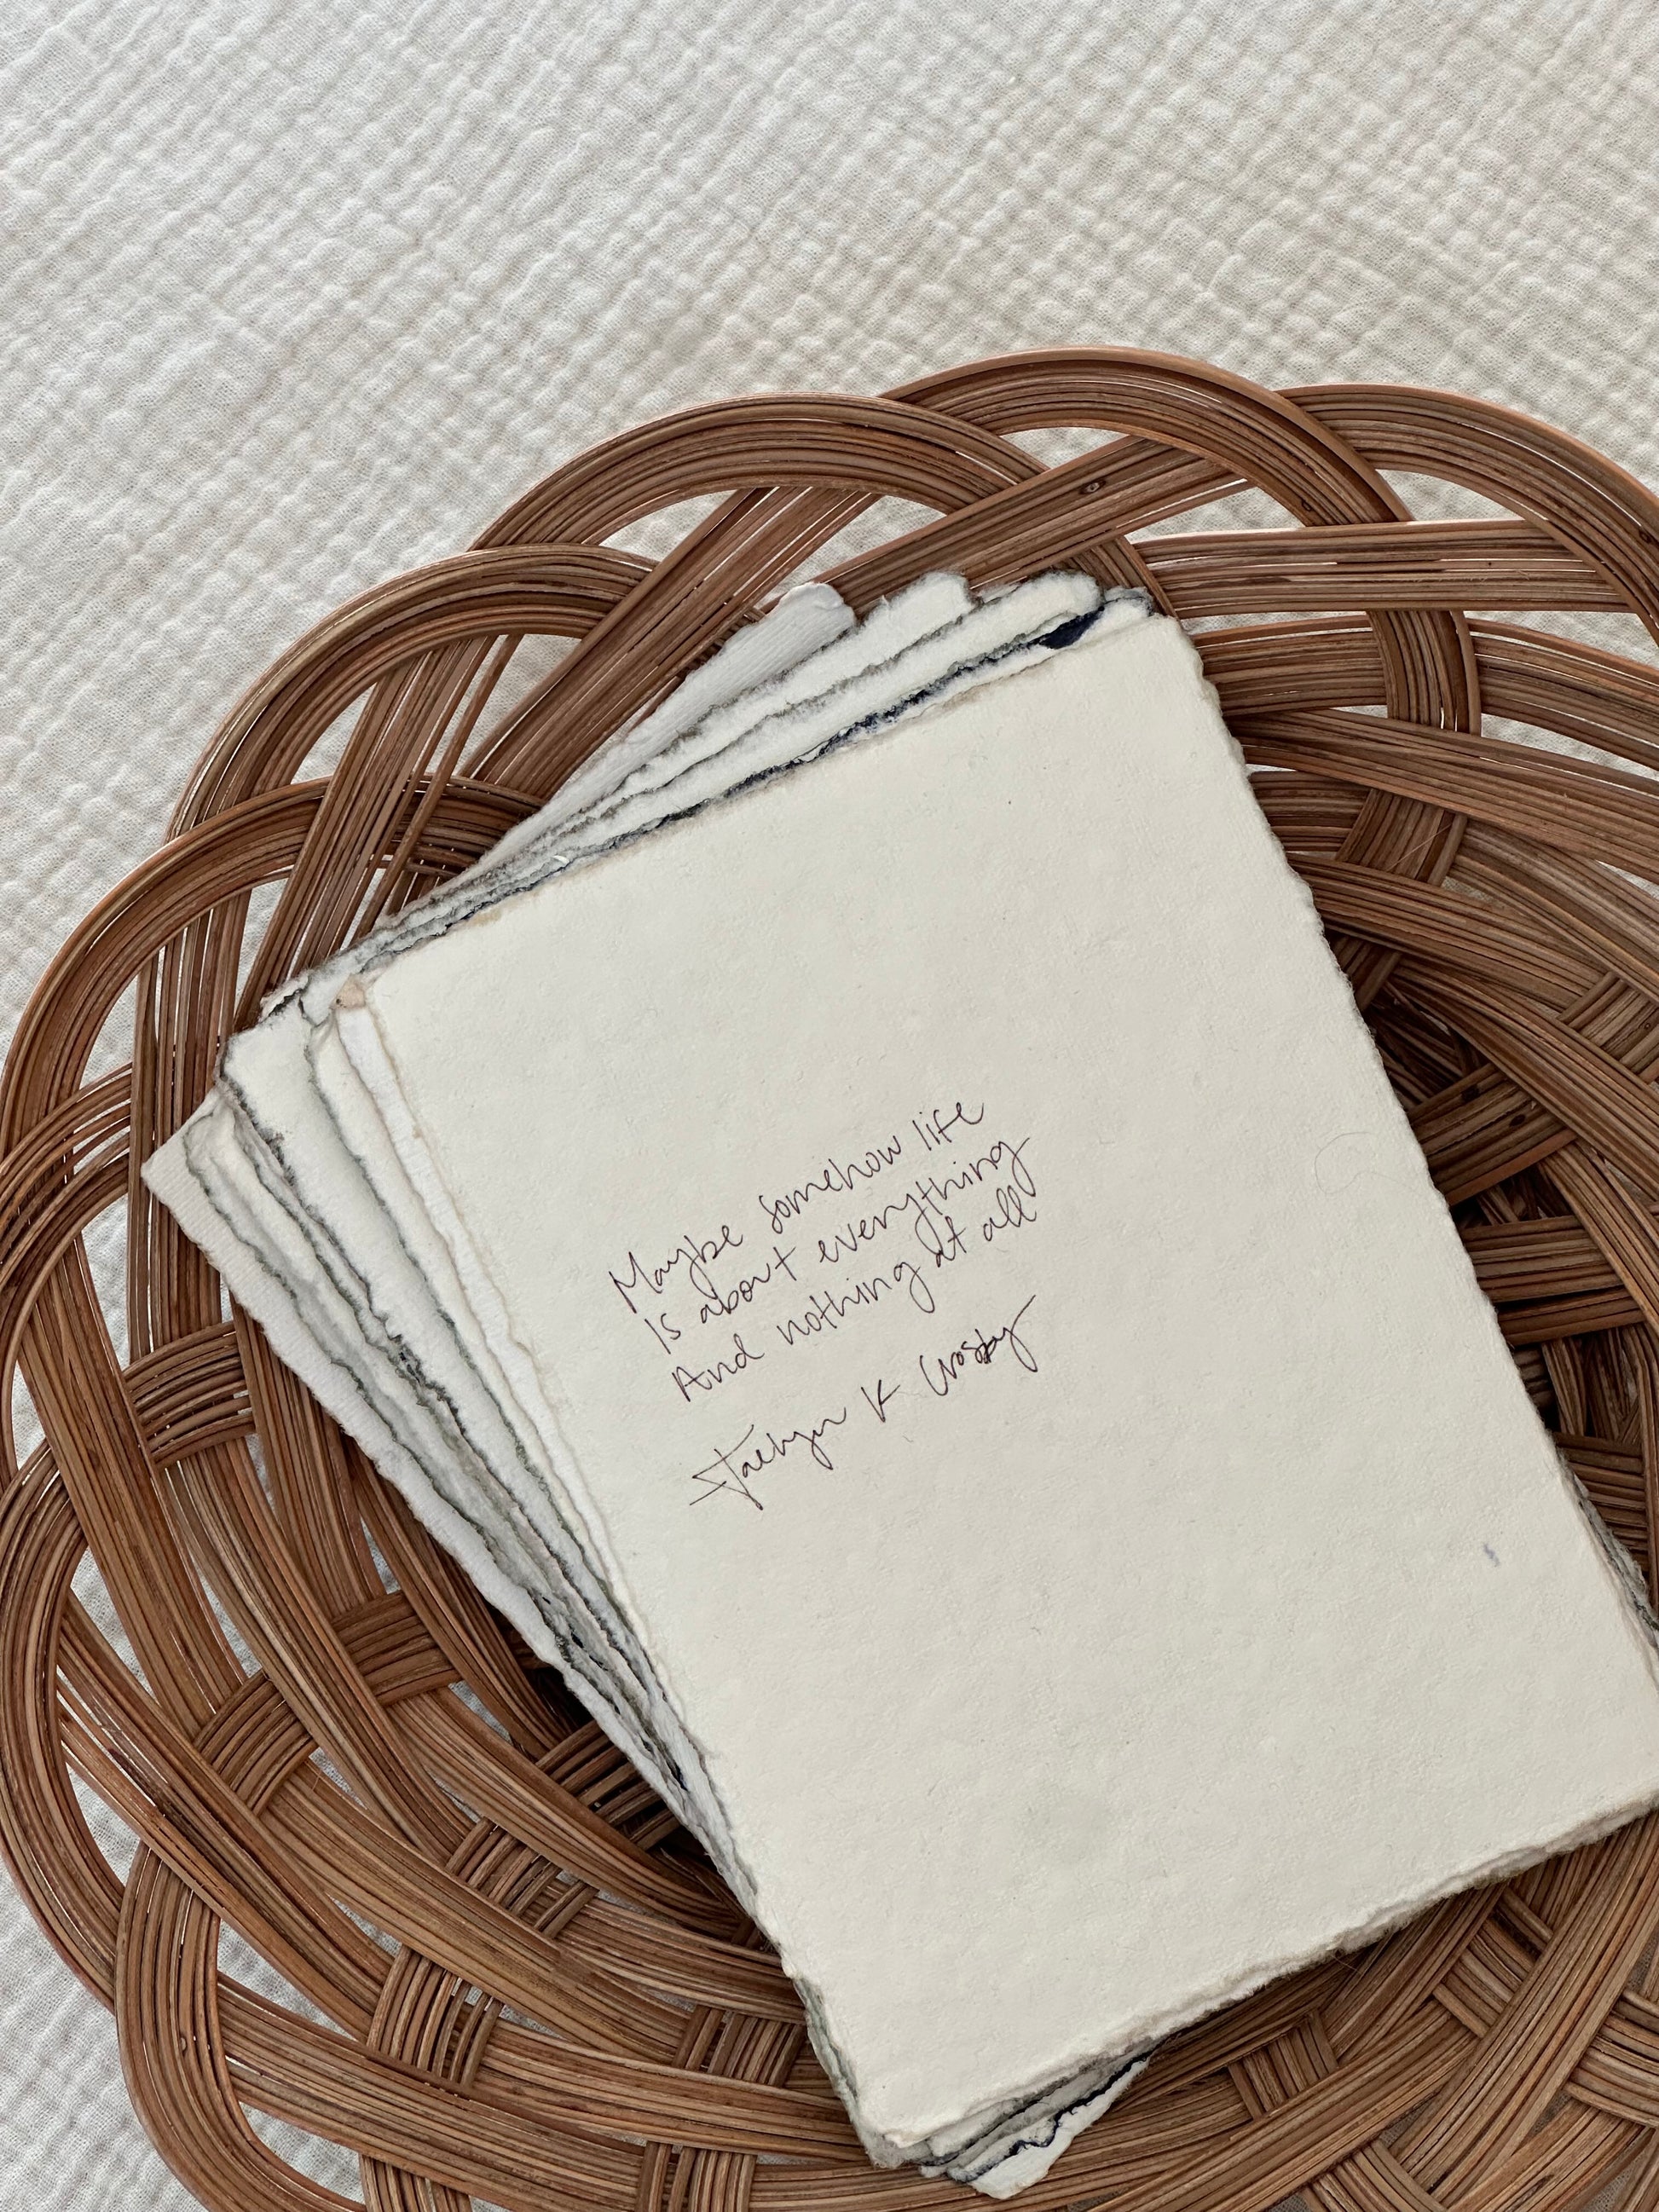 Maybe somehow life
Is about everything
And nothing at all
Jaelyn K Crosby